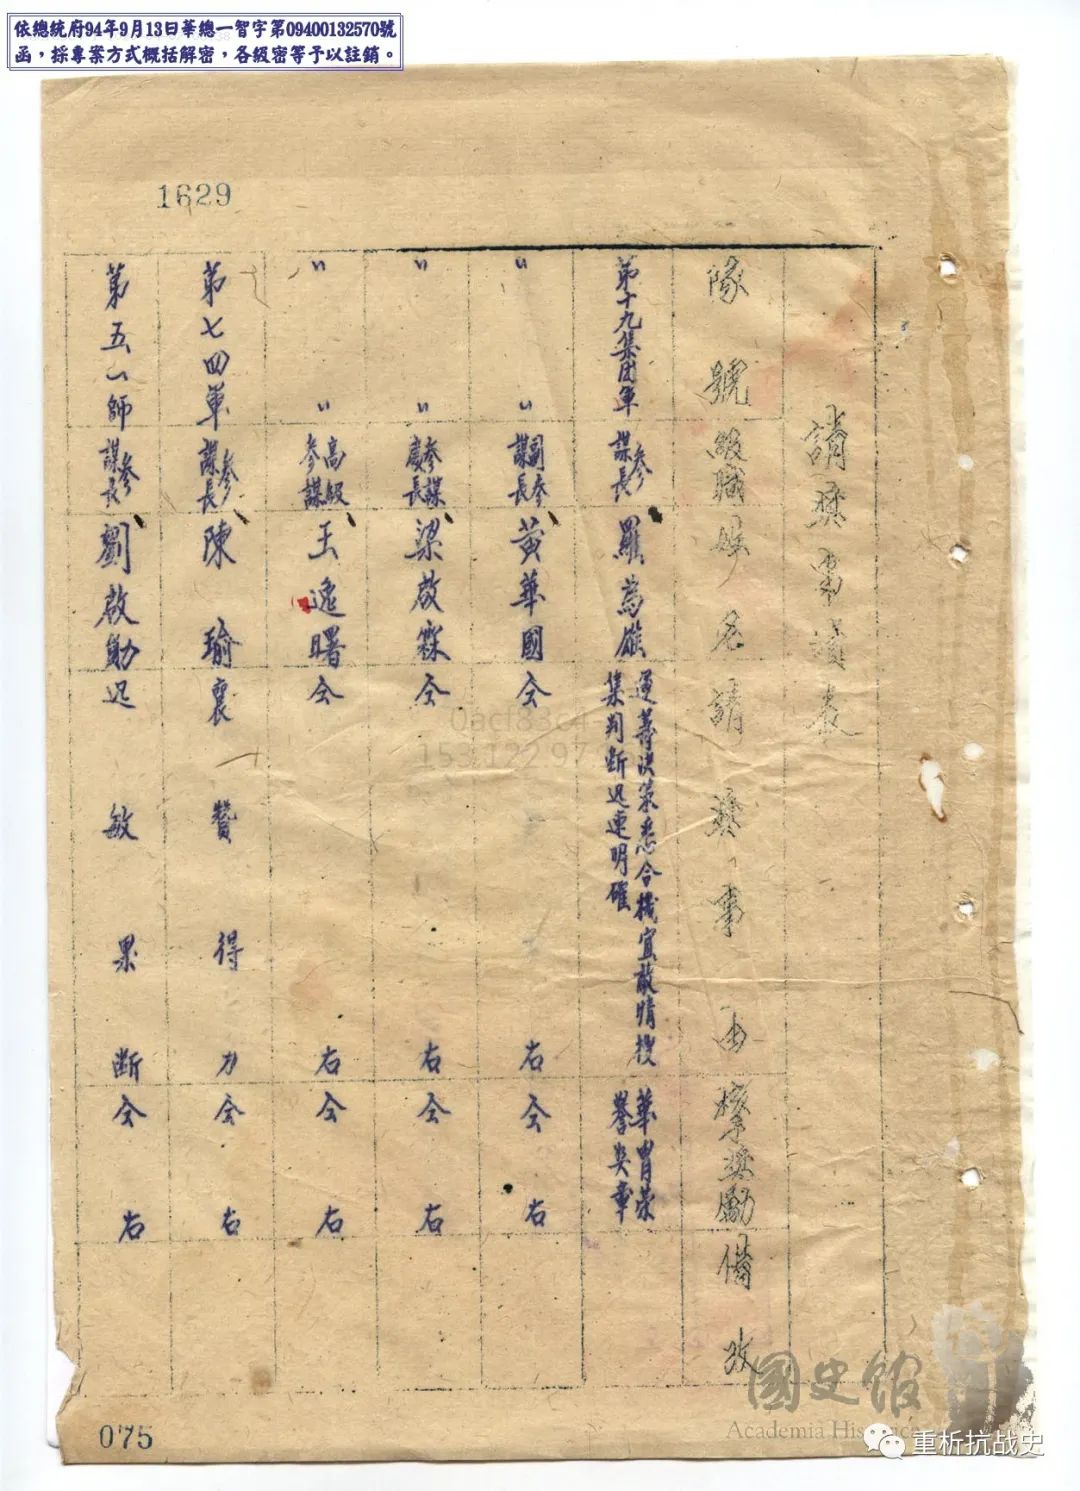 依總統府94年9月13日華總一智字第09400132570號
函，採專案方式概括解密，各級密等予以註銷。
1629
請獎事蹟表
隊號 級職 姓名 請獎事由 擬獎勵 備攷
第十九集团軍 参謀長 羅為雄 運籌決策悉合機宜敵情搜集判断迅速明確 華胄荣譽奖章
〃 〃 副参謀長 黃華國 仝右 仝右
〃 〃 参謀處長 梁啟霖 仝右 仝右
〃 〃 高級参謀 王逸曙 仝右 仝右
第七四軍 参謀長 陳瑜 襄贊得力 仝右
第五一師 参謀長 劉啟勛 迅敏果断 仝右
075
國史館
Academia Historica
重析抗战史